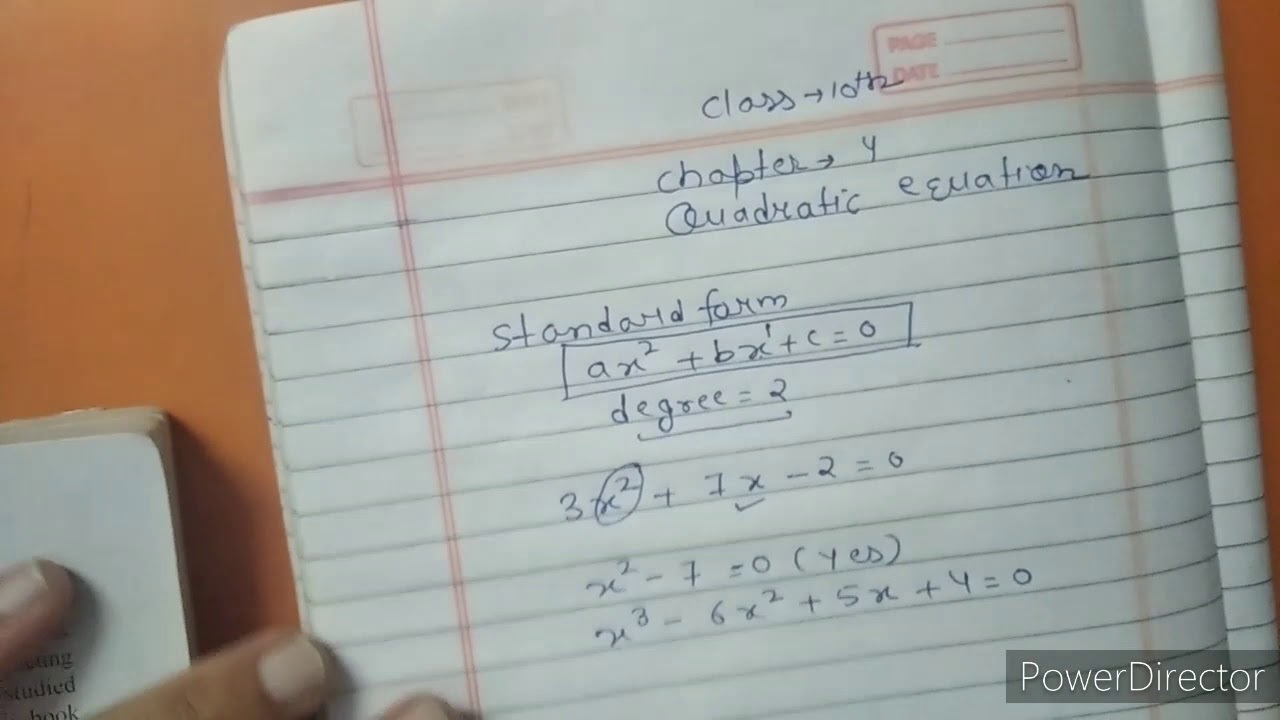 PAGE
DATE
class → 10th
chapter → 4
Quadratic equation
standard form
ax² + bx¹ + c = 0
degree = 2
3x² + 7x - 2 = 0
x² - 7 = 0 (yes)
x³ - 6x² + 5x + 4 = 0
studied
book
PowerDirector